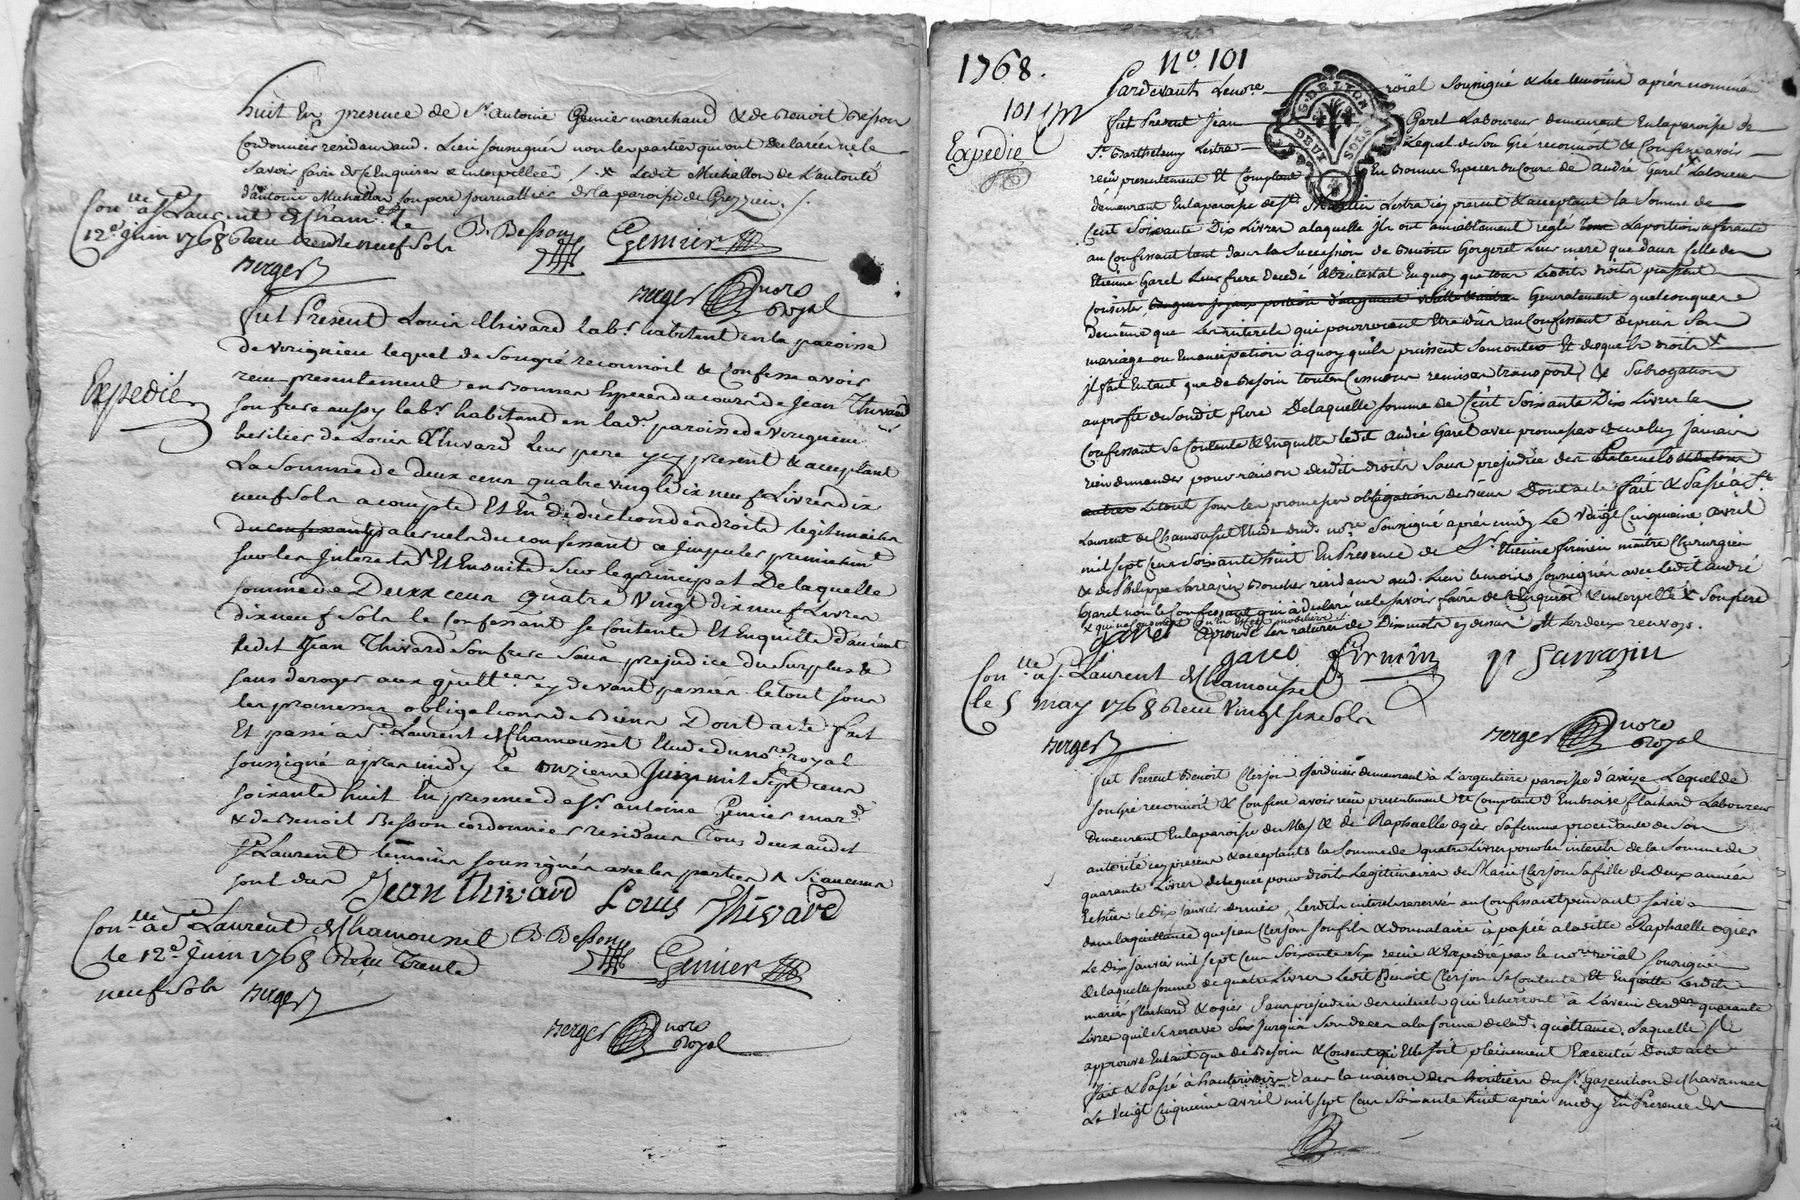 huit En presence de Sr. antoine Gemier marchand & de Benoit Besson
Cordonnier residans aud. Lieu sousignés non les parties qui ont declaré ne le
Savoir faire de ce Enquises & interpellées /. x Ledit Michallon de L'autorité
d'antoine Michallon son pere journallier de la paroisse de Grezzieu ./.
Con.lle a St. Laurent de Cham.set le
12e. Juin 1768 Reçu trente neuf Sols
B Besson
Gemier
Berger
Berger nore
Royal
fut Present Louis thivard lab.r habitant en la paroisse
de virignieu lequel de son gré reconnoit & Confesse avoir
Expedié
reçu presentement en Bonnes Especes du cours de Jean Thivard
son frere aussy lab.r habitant en lad. paroisse de virigneu
heritier de Louis Thivard leur pere ycy present & acceptant
La Somme de deux cens quatre vingt dix neuf Livres dix
neuf Sols a compte Et En deduction des droits legitimaires
du confessant paternels du confessant a Imputer premierement
sur les Interets Et Ensuite Sur le principal De laquelle
somme de Deux cens quatre vingt dix neuf Livres
dix neuf Sols le confessant se Contente Et Enquitte d'autant
ledit Jean Thivard son frere Sans prejudice du surplus &
sans deroger aux quitt.ces cy devant passées le tout sous
les promesses obligations de Biens Dont acte fait
Et passé a St. Laurent de Chamousset Etude du nore. royal
soussigné apres midy le onzieme Juin mil Sept cens
soixante huit En presence de Sr. antoine Gemier mard.
& de Benoit Besson cordonnier residans Tous deux audit
St. Laurent temoins soussignés avec les parties
Jean thivard Louis Thivard
Con.lle a St. Laurent de Chamousset
le 12e. Juin 1768 Reçu Trente
neuf Sols Berger
B Besson
Gemier
Berger nore
Royal
1768. No. 101
101
Expedié
G. DE LYON
DEUX SOLS
Pardevant Le nore. roïal sousigné & les temoins après nommés
fut Present Jean Garel Laboureur demeurant En la paroisse de
St. Barthelemy Lestra Lequel de Son Gré reconnoit & Confesse avoir
reçu presentement Et Comptant En Bonnes Especes du Cours de andré Garel x Laboureur
demeurant En la paroisse de St. Martin Lestra icy present & acceptant la Somme de
Cent Soixante Dix Livres a laquelle Ils ont amiablement reglé La portion afferante
au Confessant tant dans la Succession de Benoite Gorgeret Leur mere que dans celle de
Etienne Garel Leur frere decedé abintestat En quoy que tous Lesdits droits puissent
consister Generalement quelconques
de même que Les interets qui pourroient Etre dûs au Confessant depuis Son
mariage ou Emancipation à quoy qu'ils puissent Se monter Et desquels droits x
il fait En tant que de Besoin toutes Cessions remises transports & Subrogation
au profit de Son dit frere De laquelle somme de Cent Soixante Dix Livres le
Confessant Se Contente & En quitte ledit André Garel avec promesses de ne luy Jamais
rien demander pour raison desdits droits Sans prejudice des Paternels
Le tout sous les promesses obligations de Biens Dont acte fait & Passé à St.
Laurent de Chamousset Etude dud. nore. Sousigné après midy Le Vingt Cinquieme avril
mil sept Cens Soixante huit En Presence de Sr. Etienne firmin maître Chirurgien
& de Philippe Sarrazin Boucher residans aud. Lieu temoins Sousignés avec ledit André
Garel non le Confessant qui a declaré ne le Savoir faire de ce Enquis & interpellé x Son frere
x qui ne consistent qu'en Effets mobiliers
garel aprouvé les ratures de Dix mots cy dessus Et les deux renvoys.
garel Firmin p Sarrazin
Con.lle a St. Laurent de Chamousset
le 5 may 1768 Reçu Vingt six Sols
Berger
Berger nore
Royal
fut Present Benoit Clerjon Jardinier demeurant à L'argentiere paroisse d'aveize Lequel de
son gré reconnoit & Confesse avoir reçu presentement Et Comptant d'Embroise flachard Laboureur
Demeurant En la paroisse du Mas & de Raphaelle ogier Sa femme procedante de Son
autorité icy presens & acceptants la Somme de quatre Livres pour les interets de la Somme de
quarante Livres deleguée pour droits Legitimaires de Marie Clerjon Sa fille de Deux années
Echües le Dix Janvier dernier, Lesdits interets reservés au Confessant pendant Sa vie
dans la quittance que Jean Clerjon Son fils & donnataire a passée a ladite Raphaelle ogier
Le Dix Janvier mil sept Cens Soixante Six reçue & Expediée par le nore. roïal Sousigné
De laquelle Somme de quatre Livres Ledit Benoit Clerjon Se Contente Et En quitte Lesdits
mariés flachard & ogier Sans prejudice des interets qui Echerront à L'avenir desd. quarante
Livres qu'il Se reserve jusqu'à Son deces a la forme de lad. quittance, Laquelle Il
approuve En tant que de Besoin & Consent qu'Elle Soit pleinement Executée Dont acte
fait & Passé à hauterivoire dans la maison des heritiers du Sr. Gasenchon de Chavannes
Le Vingt Cinquieme avril mil sept Cens Soixante huit après midy En Presence de